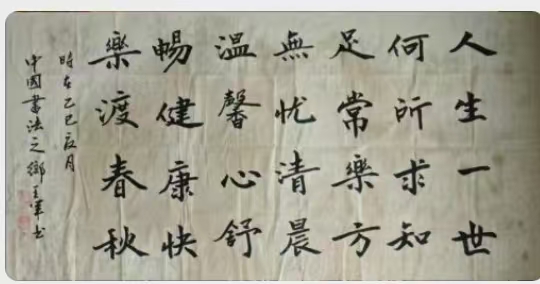 人生一世
何所求知
足常樂方
無忧清晨
温馨心舒
暢健康快
樂渡春秋
時在乙巳夏月
中國書法之鄉王军书